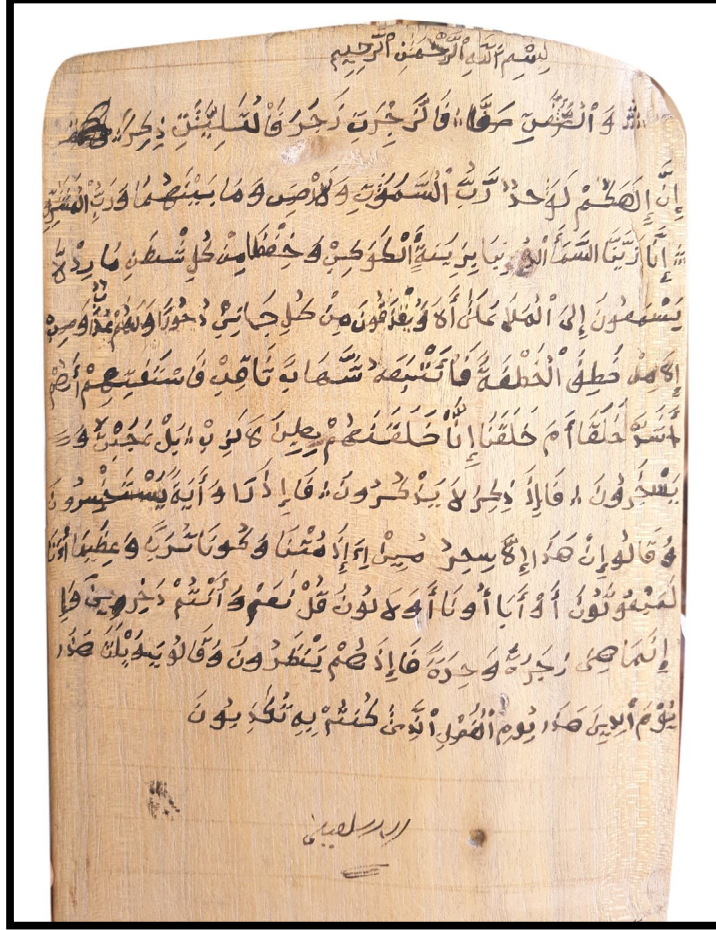 بِسْمِ اللَّهِ الرَّحْمَٰنِ الرَّحِيمِ
وَالصَّفَّتِ صَفًّا فَالزَّجِرَتِ زَجْرَ فَالتَّلِيَّتِ ذِكِرًا
إِنَّ إِلَهَكُمْ لَوَحِدٌ رَّبُّ السَّمَوَتِ وَلَارْضِ وَمَا بَيْنَهُمَا وَرَبُّ الْمَشَرِقِ
إِنَّا زَيَّنَّا السَّمَآ الدُّنْيَا بِزِينَةِ الْكَوَكِبِ وَحِفْظًا مِنْ كُلِّ شَيْطَنٍ مَارِدْ لَّا
يَسْمَعُونَ إِلَى الْمَلَإِ وَيُقْذَفُونَ مِنْ كُلِّ جَانِبِ دُحُورًا وَلَهُمْ عَذَابٌ وَصِبْ
إِلَّا مَنْ خَطِفَ الْخَطْفَةَ فَأَتْبَعَهُ شَهَابٌ ثَاقِبْ فَاسْتَفْتِهِمْ أَهُمْ
أَشَدُّ خَلْقًا أَمَ خَلَقْنَا إِنَّا خَلَقْنَهُمْ مِنْ طِينٍ لَازِبْ بَلْ عَجِبْتَ وَ
يَسْخَرُونَ فَإِذَا ذِكِرُ لَا يَذْكُرُونَ فَإِذَا رَاَوَ أَيَةً يَسْتَسْخِرُونَ
وَقَالُو إِنْ هَذَا إِلَّا سِحِرُ مُبِينْ إِذَا مِتْنَا وَكُونَا تُرَبً وَعِظَمًا أَءِنَّا
لَمَبْعُوثُونَ أَوْ أَبَاأُونَا أَوَلَا لُونَ قُلْ نَعَمْ وَأَنْتُمْ دَخِرُونَ فَإِ
إِنَّمَا هِيَ زَجَرَةٌ وَحِدَةٌ فَإِذَ هُمْ يَنْظُرُونَ وَقَالُو يَوَيْلَنَا هَذَا
يَوْمَ الدِينِ هَذَا يَوْمُ الْفَصْلِ الَّذِي كُنتُمْ بِهِ تُكَذِبُونَ